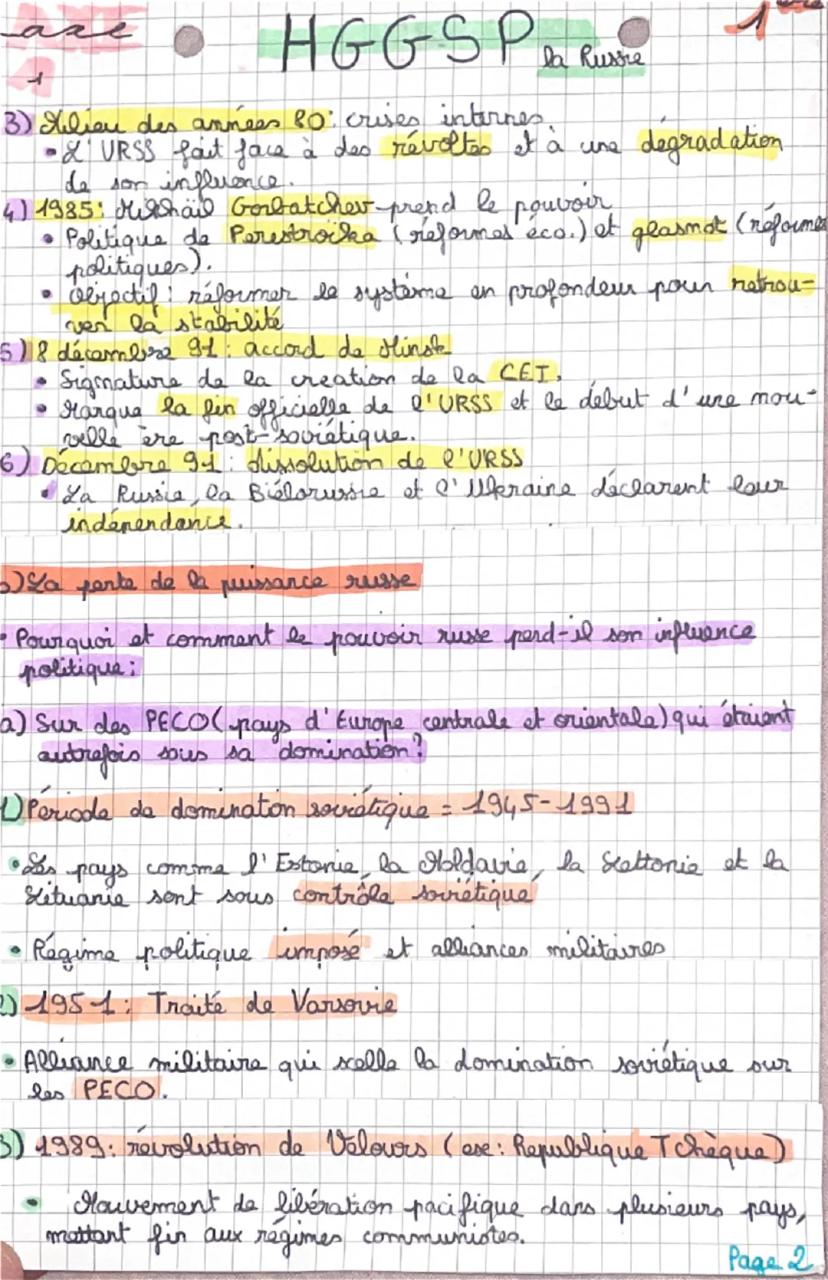 axe HGGSP 1ère
1 la Russie
3) Milieu des années 80: crises internes.
• L'URSS fait face à des révoltes et à une dégradation
de son influence.
4) 1985: Mikhaïl Gorbatchev prend le pouvoir
• Politique de Perestroïka (réformes éco.) et glasnot (réformes
politiques).
• Objectif: réformer le système en profondeur pour retrou-
ver la stabilité
5) 8 décembre 91: accord de Minsk
• Signature de la création de la CEI.
• Marque la fin officielle de l'URSS et le début d'une nou-
velle ère post-soviétique.
6) Décembre 91: dissolution de l'URSS
• La Russie, la Biélorussie et l'Ukraine déclarent leur
indépendance.
b) La perte de la puissance russe
• Pourquoi et comment le pouvoir russe perd-il son influence
politique:
a) Sur des PECO (pays d'Europe centrale et orientale) qui étaient
autrefois sous sa domination?
1) Période de domination soviétique = 1945-1991
• Les pays comme l'Estonie, la Moldavie, la Lettonie et la
Lituanie sont sous contrôle soviétique
• Régime politique imposé et alliances militaires
2) 1951: Traité de Varsovie
• Alliance militaire qui scelle la domination soviétique sur
les PECO.
3) 1989: révolution de Velours (ex: Republique Tchèque)
• Mouvement de libération pacifique dans plusieurs pays,
mettant fin aux régimes communistes.
Page 2